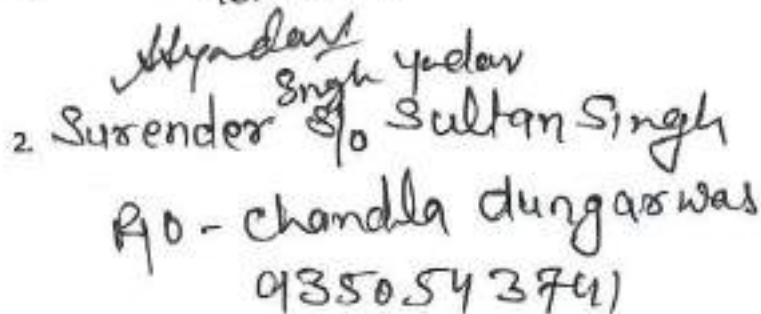 Yadav
Singh Yadav
2. Surender S/o Sultan Singh
R/O - Chandla dungarwas
9350543741